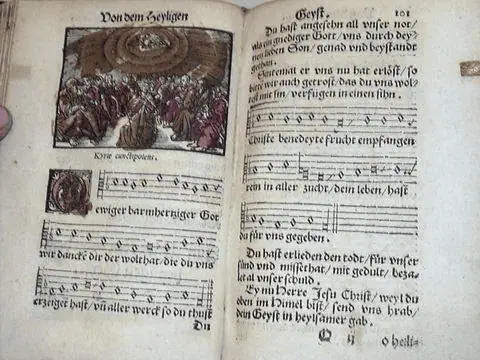 Von dem Heyligen
Kyrie cunctipotens.
O
ewiger barmhertziger Got
wir dancke dir der wolthat/die du vns
erzeiget hast/ vñ aller werck so du thust
Du
Geyst. 101
Du hast angesehn all vnser not/
als ein gnediger Gott/ vns durch dey-
nen lieben Son/ genad vnd beystandt
gethan.
Sintemal er vns nu hat erlöst/ so
bitte wir auch getrost/ das du vns wol-
test mit jm/ verfügen in einen sihn.
Christe benedeyte frucht empfangen
rein in aller zucht/dein leben/ hast
du für vns gegeben.
Du hast erlieden den todt/ für vnser
sünd vnd missethat/ mit gedult/ beza-
let al vnser schuld.
Ey nu Herre Jesu Christ/ weyl du
oben im Himel bist/ send vns hrab/
dein Geyst in heylsamer gab.
Q ij O heili-